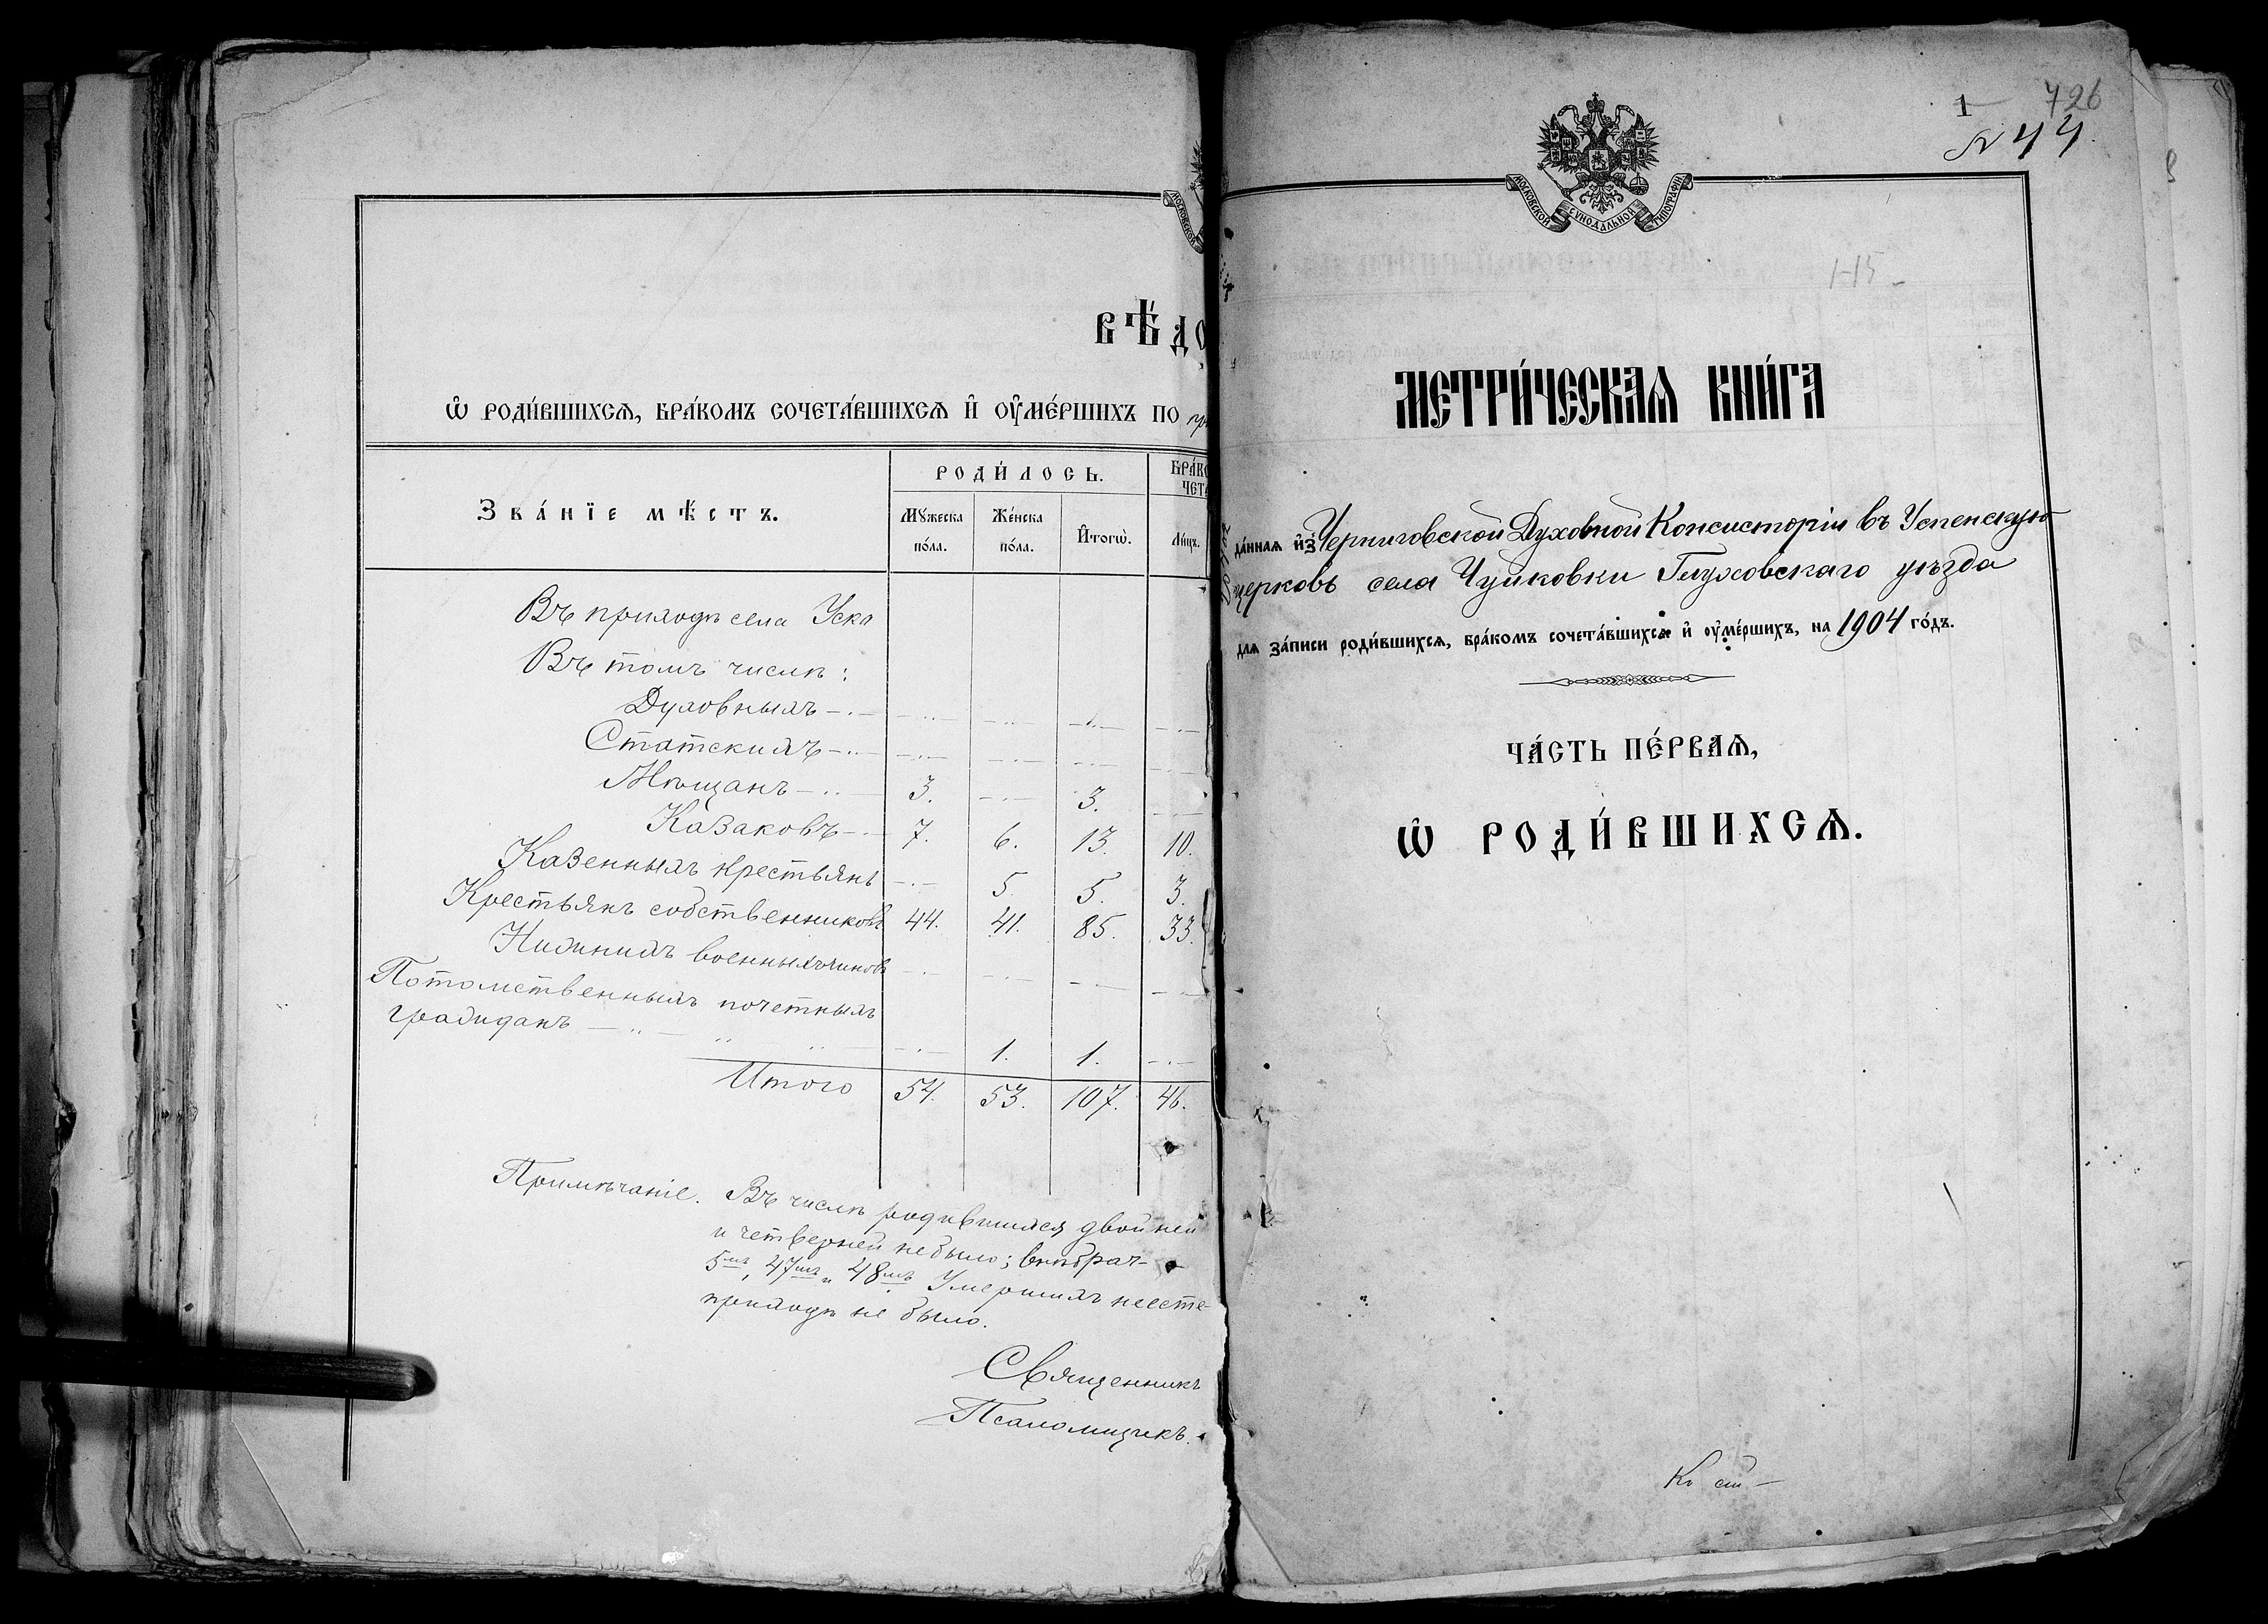 МОСКОВСКОЙ
ВѢ́ДО
Ѡ҆ РОДИ́ВШИХСѦ, БРА́КОМЪ СОЧЕТА́ВШИХСѦ И҆ ОУ҆МЕ́РШИХЪ ПО
Зва́нїе мѣ́стъ.
РОДИ́ЛОСЬ.
БРА́КО
ЧЕТА
Мꙋ́жеска
по́ла.
Же́нска
по́ла.
И҆тогѡ̀.
Ли́цъ.
Въ приходѣ села Уска
Въ томъ числѣ:
Духовныхъ
Статскихъ
Мѣщанъ 3. 3.
Казаковъ 7. 6. 13. 10.
Казенныхъ крестьянъ 5. 5. 3.
Крестьянъ собственниковъ 44. 41. 85. 33.
Нижнихъ военныхъ чиновъ
Потомственныхъ почетныхъ
гражданъ 1. 1.
Итого 54. 53. 107. 46.
Примѣчаніе. Въ числѣ родившихся двойней
и четверней не было; внѣбрач-
5мъ, 47мъ и 48мъ Умершихъ неесте-
приходѣ не было.
Священникъ
Псаломщикъ.
1 726
N 44.
МОСКОВСКОЙ СУНОДАЛЬНОЙ ТИПОГРАФІИ
1-15
МЕТРИ́ЧЕСКАѦ КНИ́ГА
да́нная и҆з̾ Черниговской Духовной Консисторіи въ Успенскую
церковь села Чуйковки Глуховскаго уѣзда
для за́писи роди́вшихсѧ, бра́комъ сочета́вшихсѧ и҆ оу҆ме́ршихъ, на 1904 го́дъ.
ЧА́СТЬ ПЕ́РВАѦ,
Ѡ҆ РОДИ́ВШИХСѦ.